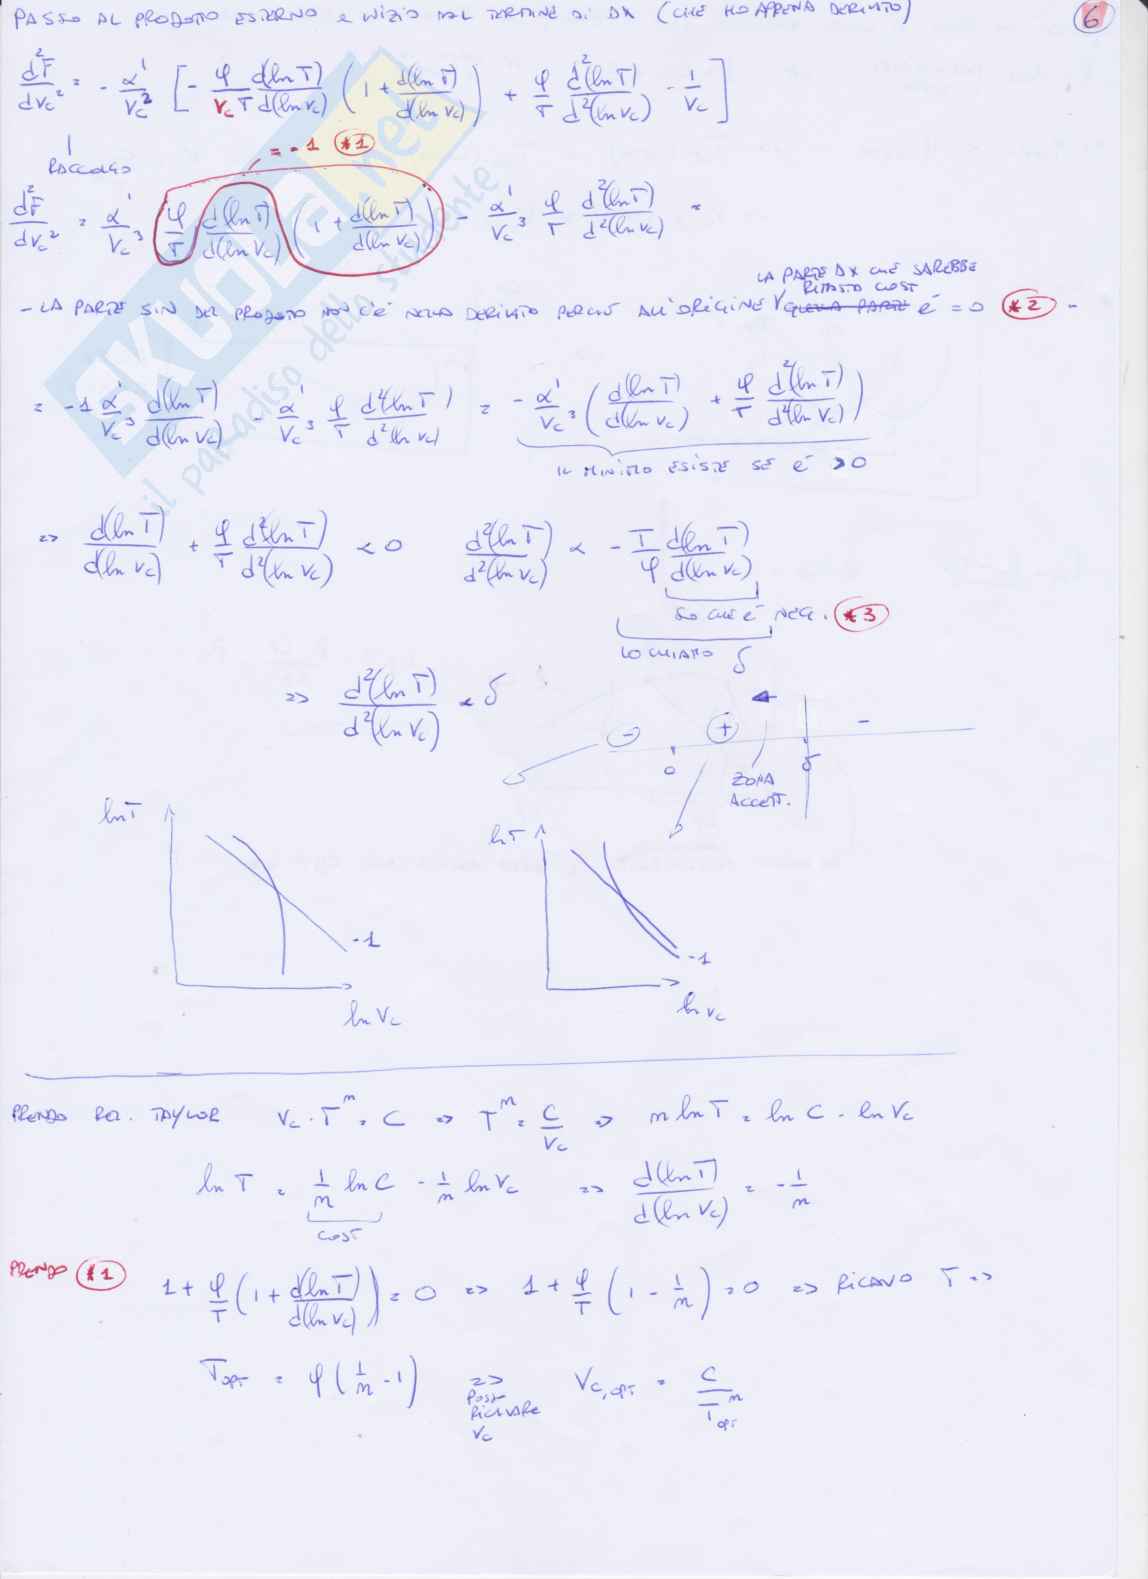 PASSO AL PRODOTTO ESTERNO e INIZIO DAL TERMINE DI DX (CHE HO APPENA DERIVATO)
6
d²F/dVc² = - α'/Vc² [ - φ/(Vc T) d(ln T)/d(ln Vc) ( 1 + d(ln T)/d(ln Vc) ) + φ/T d²(ln T)/d²(ln Vc) - 1/Vc ]
RACCOLGO
= -1 *1
d²F/dVc² = α'/Vc³ φ/T d(ln T)/d(ln Vc) ( 1 + d(ln T)/d(ln Vc) ) - α'/Vc³ φ/T d²(ln T)/d²(ln Vc) =
LA PARTE DX CHE SAREBBE
RIMASTO COST
- LA PARTE SIN DEL PRODOTTO NON C'È NELLA DERIVATA PERCHÈ ALL'ORIGINE QUELLA PARTE È = 0 *2 -
= -1 α'/Vc³ d(ln T)/d(ln Vc) - α'/Vc³ φ/T d²(ln T)/d²(ln Vc) = - α'/Vc³ ( d(ln T)/d(ln Vc) + φ/T d²(ln T)/d²(ln Vc) )
IL MINIMO ESISTE SE È > 0
=> d(ln T)/d(ln Vc) + φ/T d²(ln T)/d²(ln Vc) < 0 d²(ln T)/d²(ln Vc) < - T/φ d(ln T)/d(ln Vc)
SO CHE È NEG. *3
LO CHIAMO δ
=> d²(ln T)/d²(ln Vc) < δ
- + -
0 δ
ZONA
ACCETT.
ln T
-1
ln Vc
ln T
-1
ln Vc
PRENDO REL. TAYLOR Vc · Tⁿ = C => Tⁿ = C/Vc => n ln T = ln C - ln Vc
ln T = 1/n ln C - 1/n ln Vc => d(ln T)/d(ln Vc) = - 1/n
COST
PRENDO *1 1 + φ/T ( 1 + d(ln T)/d(ln Vc) ) = 0 => 1 + φ/T ( 1 - 1/n ) = 0 => RICAVO T =>
T_OPT = φ ( 1/n - 1 ) => Vc,OPT = C/T_OPTⁿ
POSSO
RICAVARE
Vc
SKUOLA.net
il paradiso dello studente